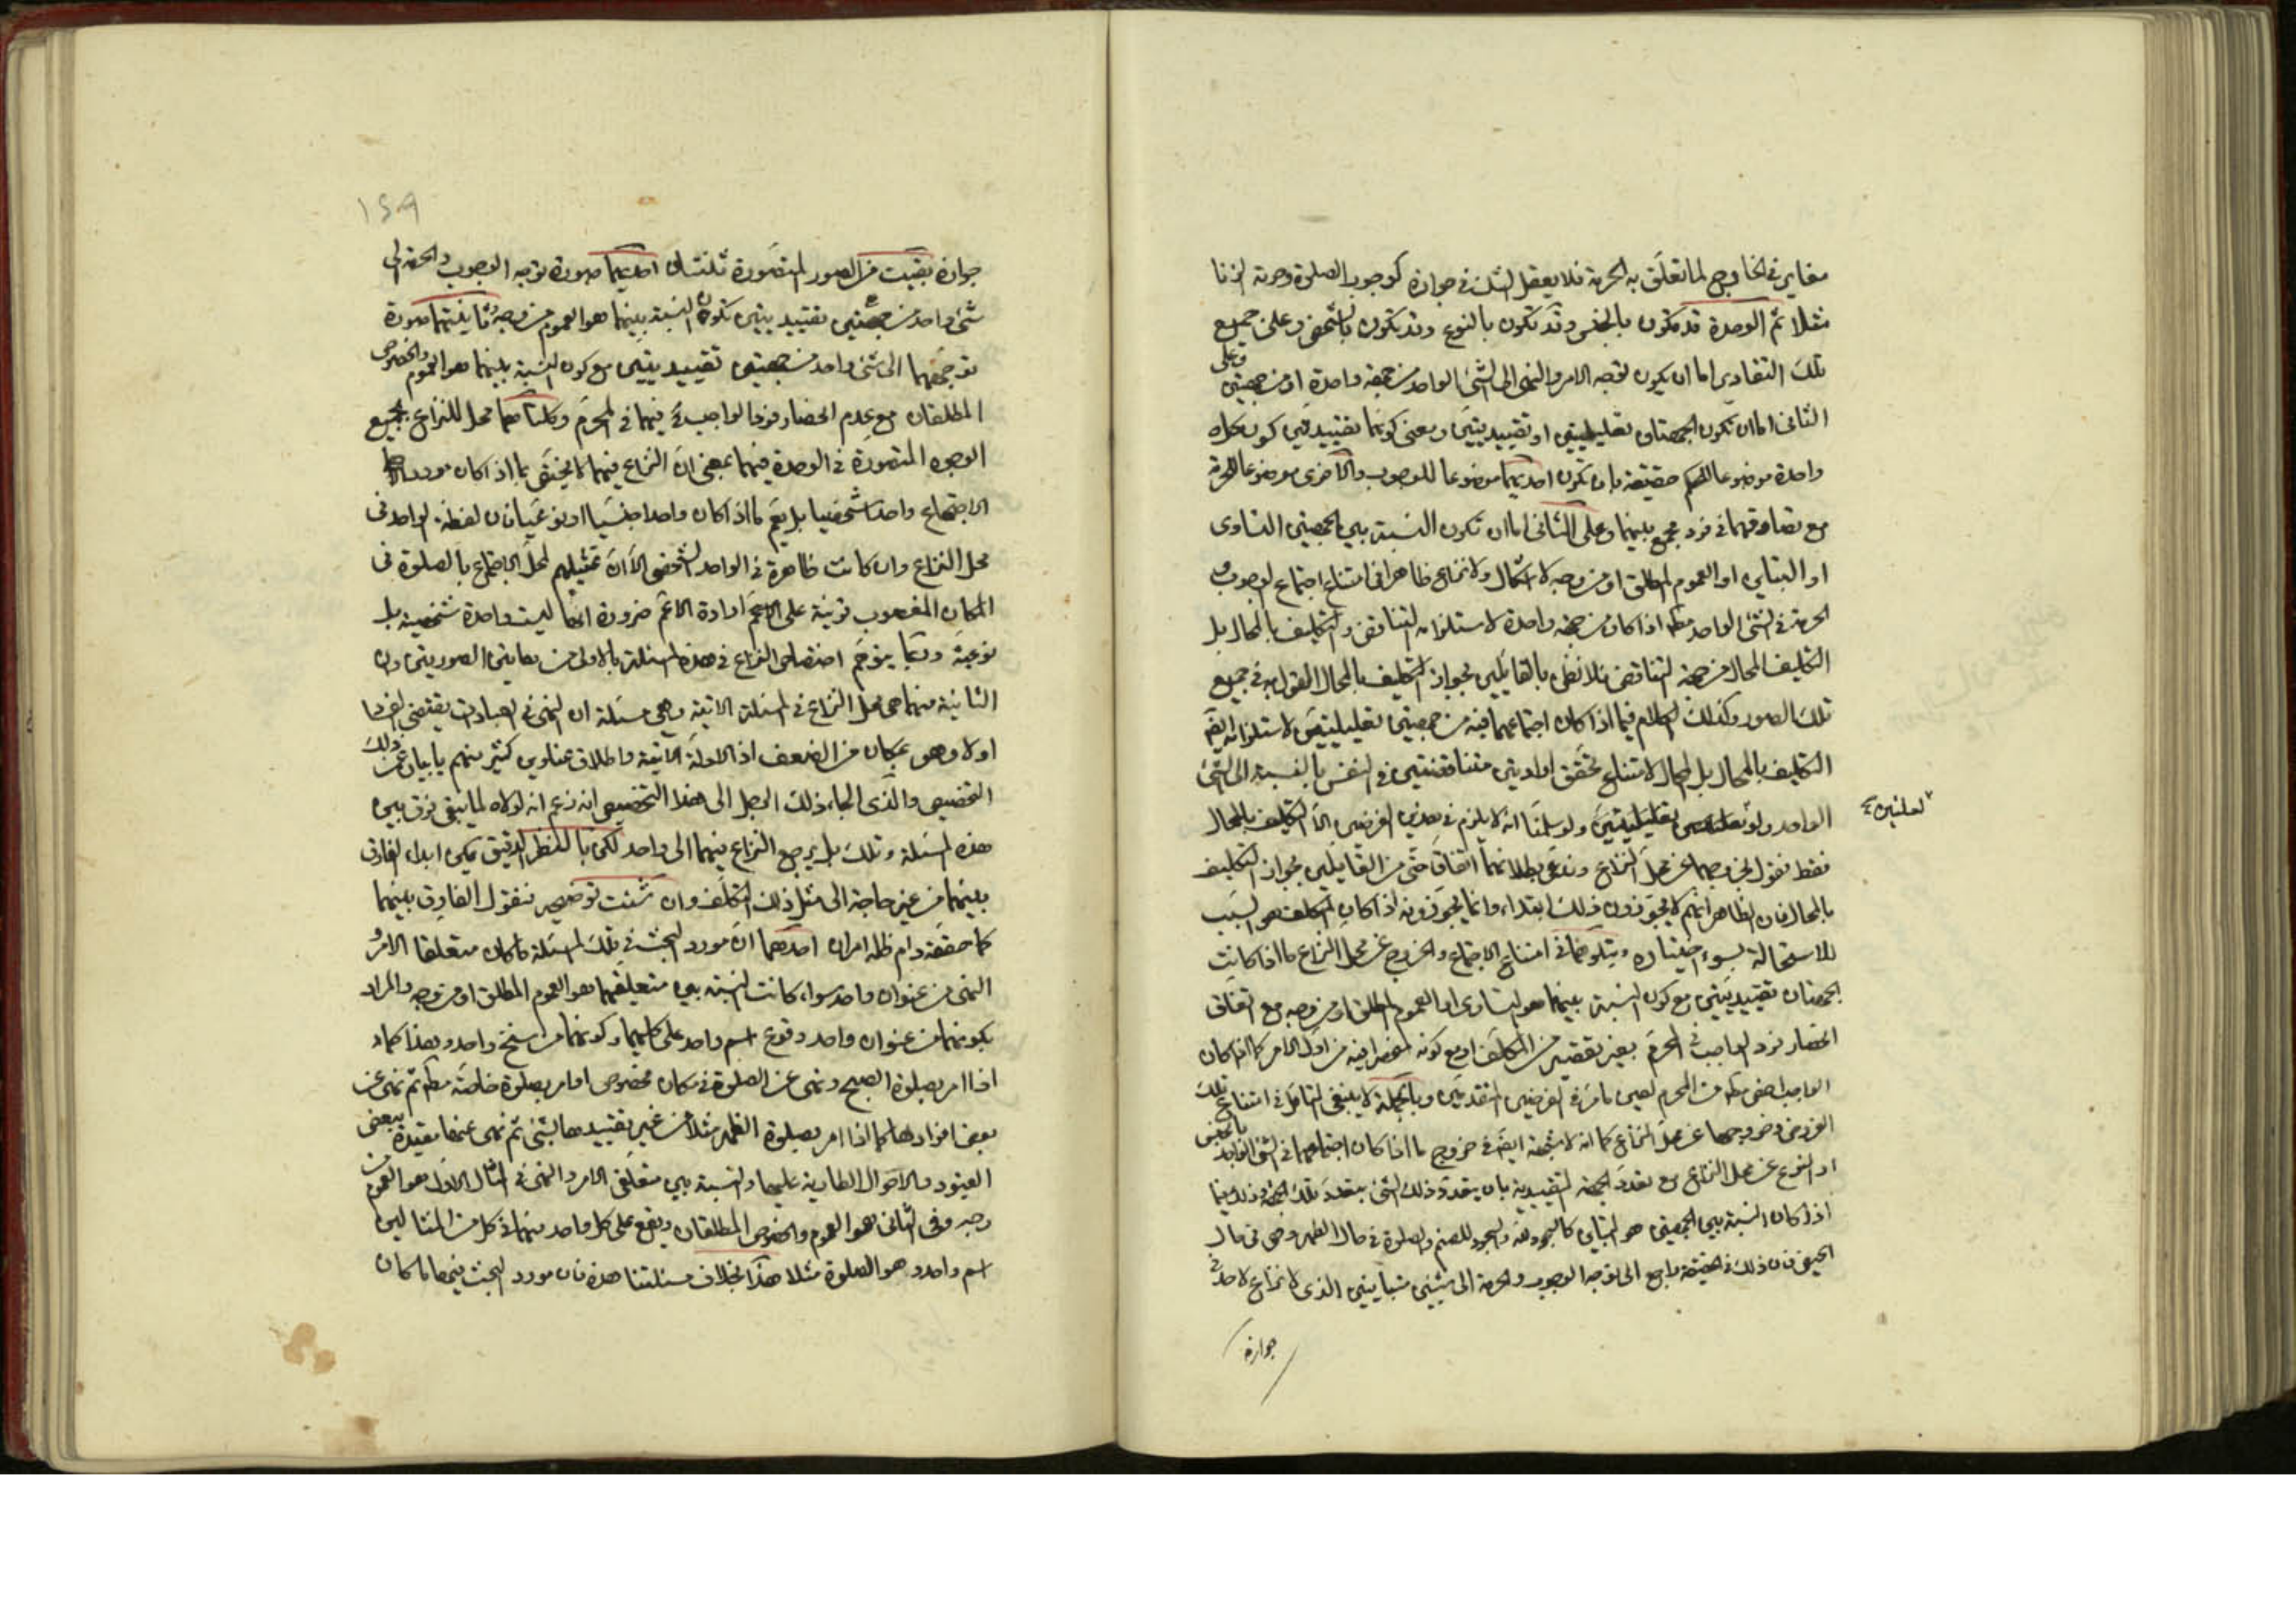 مغاير في الخارج لما تعلّق به الحرمة فلا يعقل الشك في جوازه كوجوب الصلوة وحرمة الزنا
مثلا ثم الوحدة قد تكون بالجنس وقد تكون بالنوع وقد تكون بالشخص وعلى جميع
تلك التقادير اما ان يكون توجه الامر والنهى الى الشئ الواحد من جهة واحدة او من جهتين وعلى
الثانى اما ان تكون الجهتان تعليليتين او تقييديتين ومعنى كونهما تقييديتين كون كل
واحدة موضوعا للحكم حقيقة بان تكون احديهما موضوعا للوجوب والاخرى موضوعا للحرمة
مع تصادقهما في فرد يجمع بينهما وعلى الثانى اما ان تكون النسبة بين الجهتين التساوى
او التباين او العموم المطلق او من وجه لا اشكال ولا نزاع ظاهرا في امتناع اجتماع الوجوب و
الحرمة في الشئ الواحد مطم اذا كان من جهة واحدة لاستلزامه التناقض والتكليف بالمحال بل
التكليف المحال من جهة التناقض فلا نظن بالقائلين بجواز التكليف بالمحال القول به في جميع
تلك الصور وكذلك الكلام فيما اذا كان اجتماعهما فيه من جهتين تعليليتين لاستلزامه ايضا
التكليف بالمحال بل المحال لامتناع تحقق ارادتين متناقضتين في النفس بالنسبة الى الشئ
الواحد ولو لعلتين تعليليتين ولو سلمنا انه لا يلزم في هذين الفرضين الا التكليف بالمحال
لعلتين
فقط فنقول بخروجهما عن محل النزاع وندعى بطلانهما اتفاقا حتى من القائلين بجواز التكليف
بالمحال فان الظاهر انهم لا يجوزون ذلك ابتداء وانما يجوزونه اذا كان المكلف هو السبب
للاستحالة بسوء اختياره ويتلوهما في امتناع الاجتماع والخروج عن محل النزاع ما اذا كانت
الجهتان تقييديتين مع كون النسبة بينهما هو التساوى او العموم المطلق او من وجه مع اتفاق
انحصار فرد الواجب في المحرم بغير تقصير من المكلف او مع كونه منحصرا فيه من اول الامر كما اذا كان
الواجب اخص مطم من المحرم لعين ما مر في الفرضين المتقدمين وبالجملة لا ينبغى التامل في امتناع تلك
الفروض وخروجها عن محل النزاع كما انه لا شبهة ايضا في خروج ما اذا كان اجتماعهما في الشئ الواحد بالجنس
او النوع عن محل النزاع مع تعدد الجهة التقييدية بان يتعدد ذلك الشئ بتعدد تلك الجهة وذلك فيما
اذا كان النسبة بين الجهتين هو التباين كالسجود لله والسجود للصنم والصلوة في حال الطهر وهى في حال
الحيض فان ذلك في الحقيقة راجع الى توجه الوجوب والحرمة الى شيئين متباينين الذى لا نزاع لاحد في
جوازه
١٤٩
جوازه بقيت من الصور المتصورة ثلثتان احديهما صورة توجه الوجوب والحرمة الى
شئ واحد من جهتين تقييديتين تكون النسبة بينهما هو العموم من وجه وثانيتهما صورة
توجههما الى شئ واحد من جهتين تقييديتين مع كون النسبة بينهما هو العموم والخصوص
المطلقان مع عدم انحصار فرد الواجب فيهما في المحرم وكلتاهما محل للنزاع بجميع
الوجوه المتصورة في الوحدة فيهما بمعنى ان النزاع فيهما لا يختص بما اذا كان مورد
الاجتماع واحدا شخصيا بل يعم ما اذا كان واحدا جنسيا او نوعيا فان لفظة الواحد في
محل النزاع وان كانت ظاهرة في الواحد الشخصى الا ان تمثيلهم لمحل الاجتماع بالصلوة في
المكان المغصوب قرينة على ارادة الاعم ضرورة انها ليست واحدة شخصية بل
نوعية وربما يتوهم اختصاص النزاع في هذه المسئلة بالاولى من هاتين الصورتين وان
الثانية منهما هى محل النزاع في المسئلة الاتية وهى مسئلة ان النهى في العبادات يقتضى الفساد
او لا وهو بمكان من الضعف اذ الادلة الاتية واطلاق عناوين كثير منهم يابيان عن ذلك
التخصيص والذى الجاء ذلك الرجل الى هذا التخصيص انه زعم انه لولاه لما يبقى فرق بين
هذه المسئلة وتلك بل يرجع النزاع فيهما الى واحد لكن بالنظر الدقيق يمكن ابداء الفارق
بينهما من غير حاجة الى مثل ذلك التكلف وان شئت توضيحه فنقول الفارق بينهما
كما حققه دام ظله امران احدهما ان مورد البحث في تلك المسئلة ما كان متعلقا الامر و
النهى من عنوان واحد سواء كانت النسبة بين متعلقيهما هو العموم المطلق او من وجه والمراد
بكونهما من عنوان واحد وقوع اسم واحد على كليهما وكونهما من سنخ واحد وهذا كما
اذا امر بصلوة الصبح ونهى عن الصلوة في مكان مخصوص او امر بصلوة خاصة مطم ثم نهى عن
بعض افرادها كما اذا امر بصلوة الظهر مثلا من غير تقييدها بشئ ثم نهى عنها مقيدة ببعض
القيود والاحوال الطارية عليها والنسبة بين متعلقى الامر والنهى في المثال الاول هو العموم من
وجه وفى الثانى هو العموم والخصوص المطلقان ويقع على كل واحد منهما في كل من المثالين
اسم واحد وهو الصلوة مثلا هذا بخلاف مسئلتنا هذه فان مورد البحث فيها ما كان